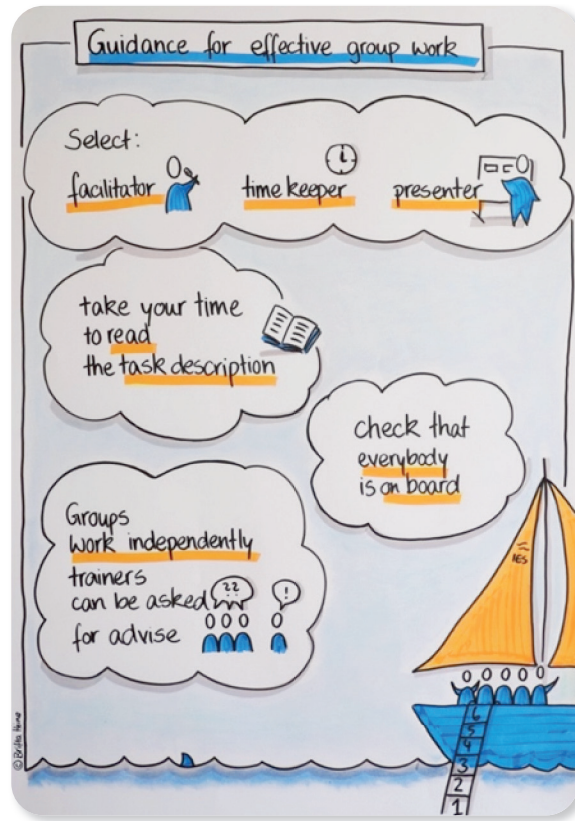 Guidance for effective group work
Select:
facilitator time keeper presenter
take your time
to read
the task description
check that
everybody
is on board
Groups
work independently
trainers
can be asked
for advise
??
!
IES
6
5
4
3
2
1